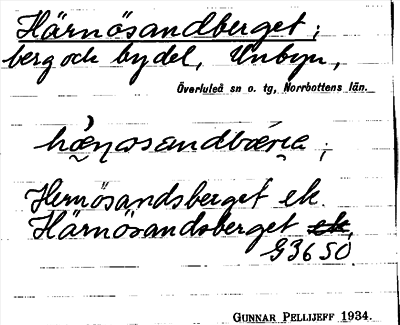 Härnösandberget;
berg och bydel, Unbyn,
Överluleå sn o. tg, Norrbottens län.
Hernösandsberget ek.
Härnösandsberget ek.
G3650
GUNNAR PELLIJEFF 1934.